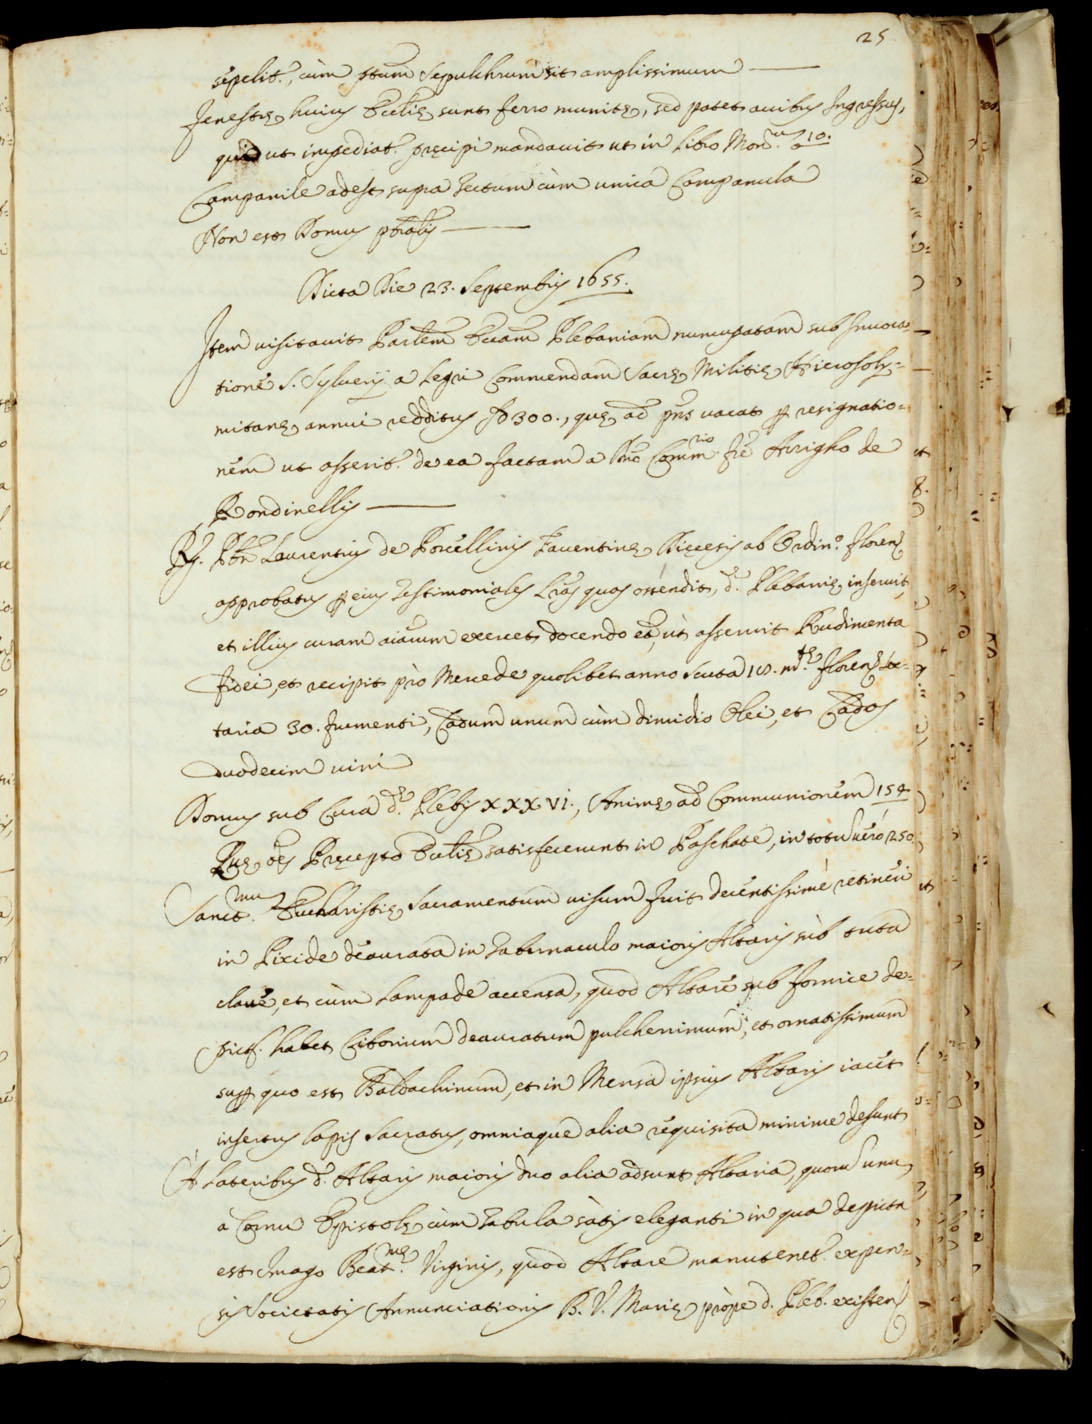 25
sepelit.r, cùm ptum sepulchrum sit amplissimum
Fenestrę huius Ecclię sunt ferro munitę, sed patet avibus Ingressus,
quod ut impediat.r pręcipi mandavit ut in libro Mon.
Campanile adest supra tectum cùm unica Campanula
Non est Domus pbralis
Dicta Die 23. Septembris 1655.
Item visitavit Parlem Ecciam Plebaniam nuncupatam sub Invoca
tione S. Sylverij a Legri Commendam Sacrę Militię Hierosoly=
mitanę annui redditus 300., quę ad pns vacat p resignatio=
nem ut asserit.r de ea factam a Commrio fre Arrigho de
Rondinellis
R.s Pbr Laurentius de Porcellinis Faventinę Diecesis ab Ordin.o Floren
approbatus p eius testimoniales lras quas ostendit, d.ę Plebanię inservit
et illius curam aiarum exercet docendo et, ùt asseruit Rudimenta
Fidei, et recipit prò Mercede quolibet anno scuta 10. mtę Floren sex=
taria 30. frumenti, Cadum unum cùm dimidio Olei, et Cados
duodecim vini
Domus sub Cura d.ę Plebis XXXVI., Animę ad Communionem 154
Quę oes Pręcepto Ecclię satisfecerunt in Paschate, in totu verò 250
Sanct.mum Eucharistię Sacramentum visum fuit decentissime retineri
in Pixide deaurata in Tabernaculo maioris Altaris sùb tuta
clave, et cùm Lampade accensa, quod Altare sub fornice de=
pict. habet Ciborium deauratum pulcherrimum, et ornatissimum
sup quo est Baldachinum, et in Mensa ipsius Altaris iacet
insertus lapis sacratus, omniaque alia requisita minime desunt
A Lateribus d. Altaris maioris duo alia adsunt Altaria, quoru unu
a Cornu Epistolę cùm Tabula sàtis eleganti in qua depicta
est Imago Beat.mę Virginis, quod Altare manutenet.r expen=
sis Societatis Annunciationis B. V. Marię pròpe d. Pleb. existen